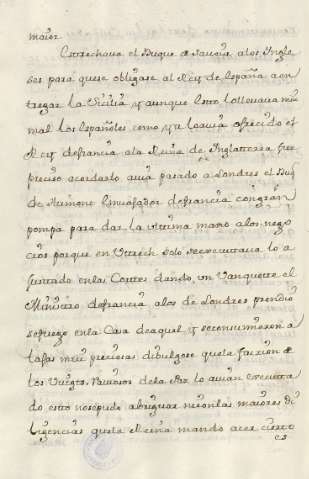 maior.
Estrechava el Duque de Savoia a los Ingle
ses para que se obligase al Rey de España a en
tregar la Sicilia y aunque esto lo llevaria mui
mal los españoles como ya lo avia ofrecido el
Rey de francia a la Reina de Inglatterra fue
preciso acordarlo avia pasado a Londres el Duq
de Aumont Embaxador de francia con gran
pompa para dar la ultima mano a los nego
cios porque en Uttrech solo se executava lo a
justado en las Cortes dando un Vanquette el
Ministro de francia a los de Londres prendio
se fuego en la Casa de aquel y se consumieron a
lajas mui preciosas dibulgose que la faccion de
los Vuigts, enemigos de la Paz lo avian executa
do esto no se pudo aberiguar ni con las maiores di
ligencias que la Reina mando acer cierto
es